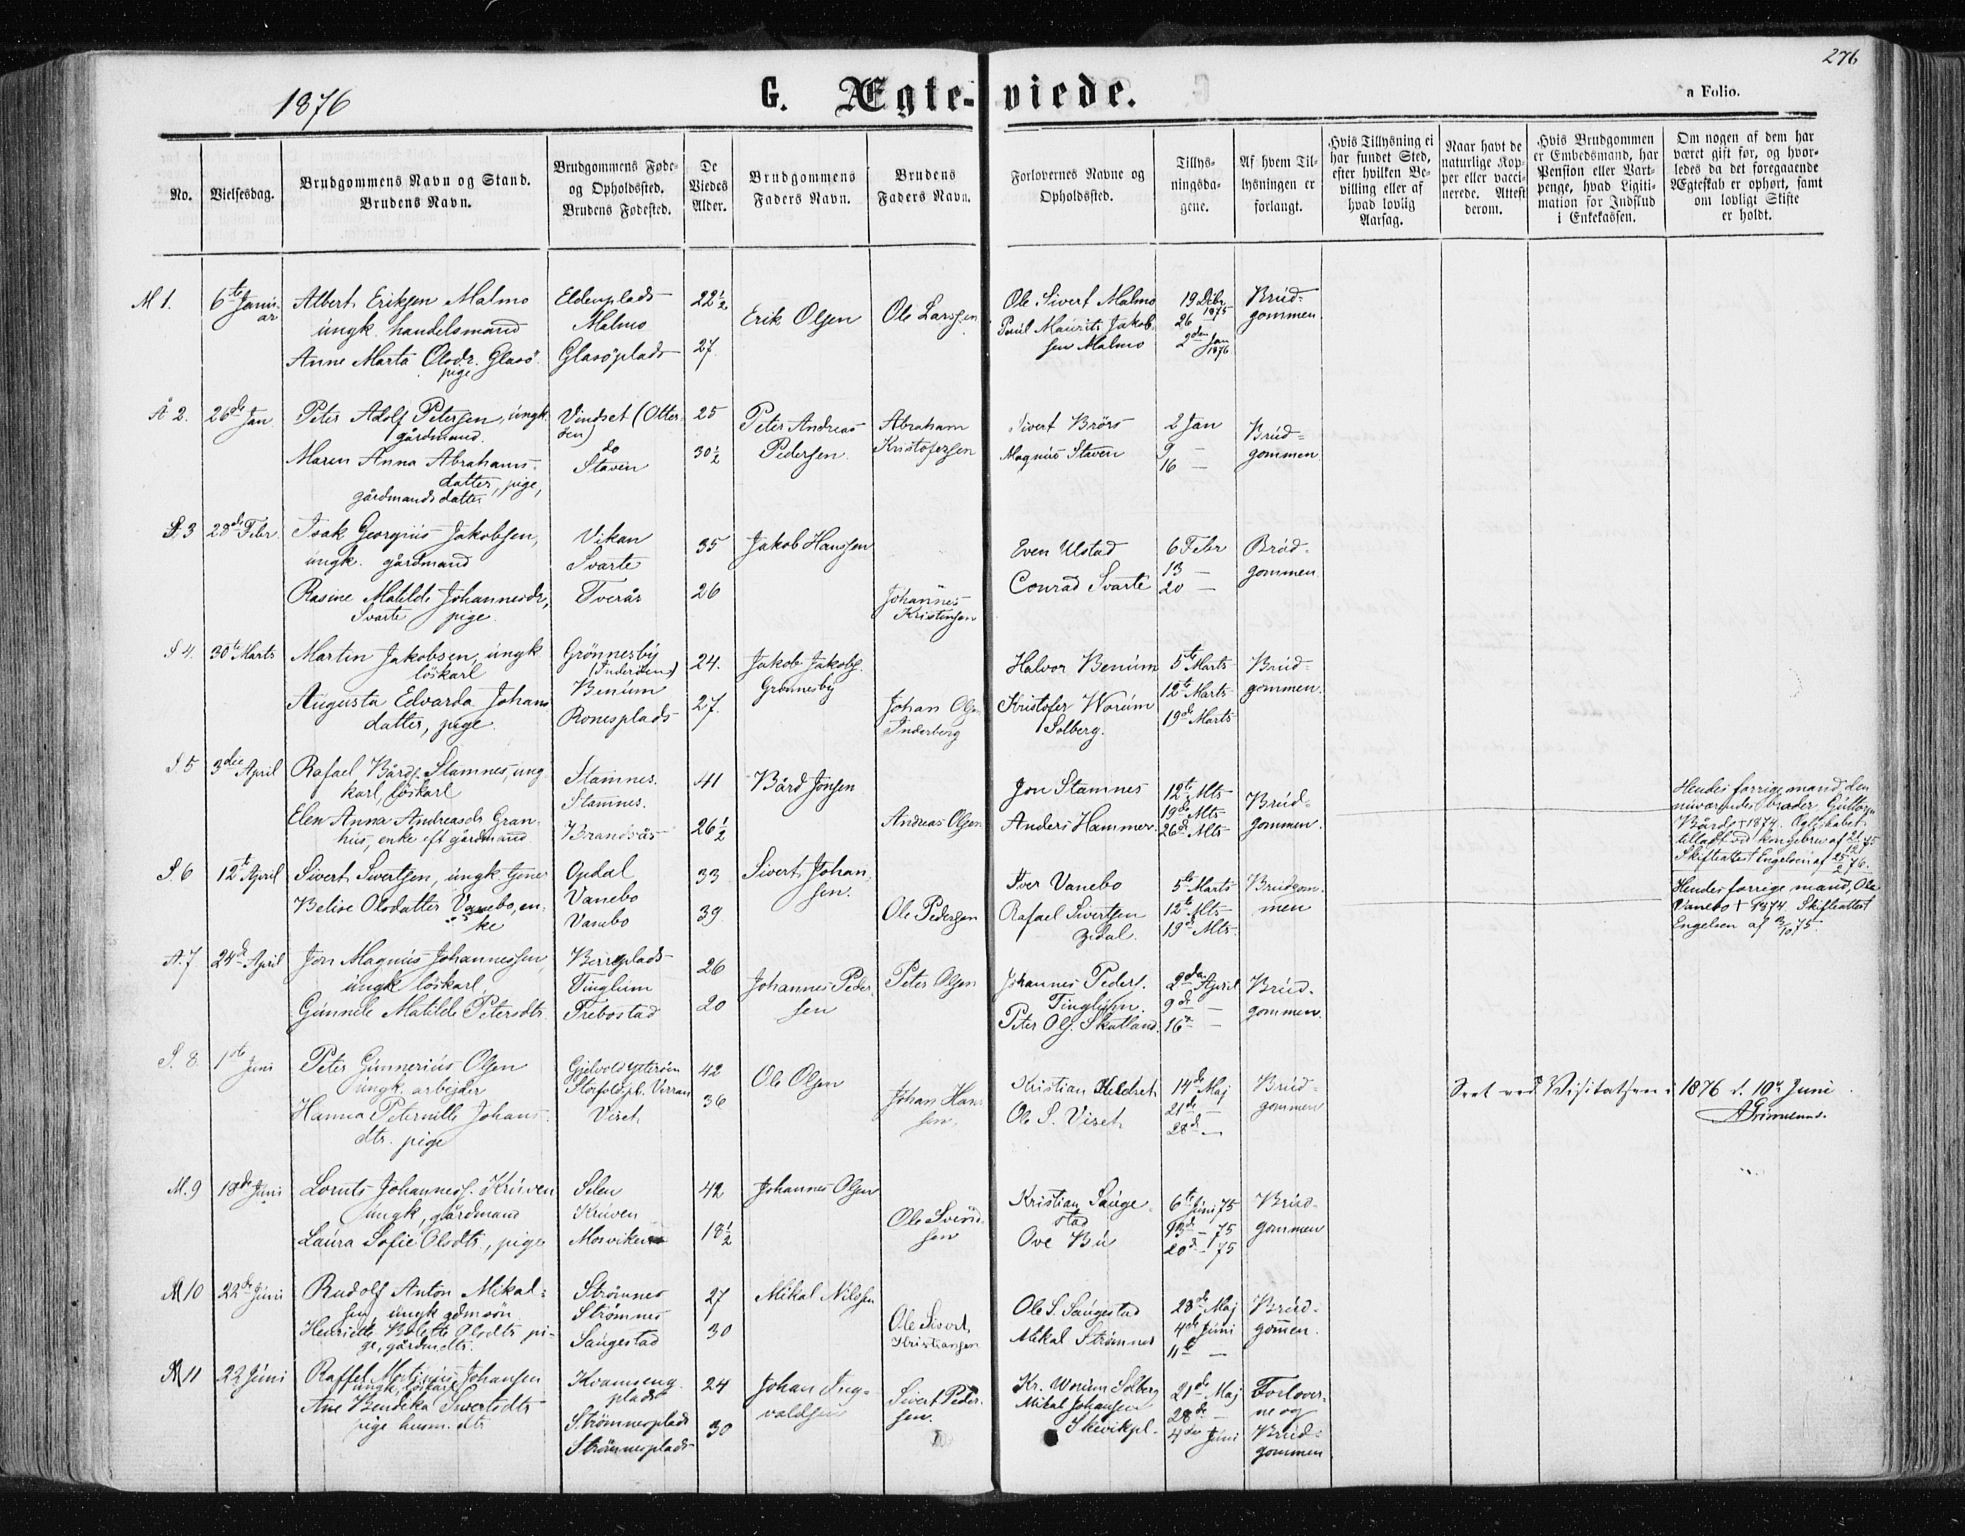 276
1876
G. Ægte-viede.
a Folio.
No.
Vielsesdag.
Brudgommens Navn og Stand.
Brudens Navn.
Brudgommens Føde-
og Opholdssted.
Brudens Fødested.
De
Viedes
Alder.
Brudgommens
Faders Navn.
Brudens
Faders Navn.
Forlovernes Navne og
Opholdssted.
Tillys-
ningsda-
gene.
Af hvem Til-
lysningen er
forlangt.
Hvis Tillysning ei
har fundet Sted,
efter hvilken Be-
villing eller af
hvad lovlig
Aarsag.
Naar havt de
naturlige Kop-
per eller vacci-
nerede. Attest
derom.
Hvis Brudgommen
er Embedsmand, har
Pension eller Vart-
penge, hvad Ligiti-
mation for Indskud
i Enkekassen.
Om nogen af dem har
været gift før, og hvor-
ledes da det foregaaende
Ægteskab er ophørt, samt
om lovligt Skifte
er holdt.
M 1.
6te Janu-
ar
Albert Eriksen Malmo
ungk. handelsmand
Anne Marta Olsdr. Glasö
pige
Eldenplads
Malmo
Glasöplads
22½
27.
Erik Olsen
Ole Larssen
Ole Sivert Malmo
Paul Maurits Jakob-
sen Malmo
19 Dcbr
26 1875
2den Jan
1876
Brud-
gommen
Å 2.
26de Jan
Peter Adolf Petersen, ungk.
gårdmand.
Maren Anna Abrahams-
datter, pige,
gårdmandsdatter
Vindset (Otter-
öen)
do
Staven
25
30½
Peter Andreas
Pedersen.
Abraham
Kristofersen
Sivert Brörs
Magnus Staven
2 Jan
9 —
16 —
Brud-
gommen
S. 3
28de Febr.
Isak Georgius Jakobsen,
ungk. gårdmand
Rasine Matilde Johannesdr,
Svarte pige.
Vikan
Svarte
Tverås
35
26
Jakob Hanssen
Johannes
Kristensen
Even Ulstad
Conrad Svarte
6 Febr
13 —
20 —
Brud-
gommen.
S 4.
30te Marts
Martin Jakobsen, ungk
löskarl
Augusta Edvarda Johans
datter, pige.
Grönnesby
(Inderöen)
Benum
Ronesplads
24.
27.
Jakob Jakobs.
Grönnesby
Johan Olsen
Inderberg
Halvor Benum
Kristofer Worum
Solberg.
5te Marts
12te Marts
19de Marts
Brud-
gommen.
S. 5
3die April
Rafael Bårds. Stamnes, ung-
karl, löskarl
Elen Anna Andreasdr Gran-
hus, enke eft gårdmand
Stamnes.
Stamnes.
Brandsås
41
26½
Bård Jonsen
Andreas Olsen
Jon Stamnes
Anders Hammer.
12te Mts
19de Mts
26de Mts
Brud-
gommen.
Hendes forrige mand, den
nuværendes broder, Guttorm
Bårds † 1874. Ægteskabet
tilladt ved kongebrev af 21/12 75
Skifteattest Engelsen af 25/2 76.
S. 6
12te April
Sivert Sivertsen, ungk.
Belise Olsdatter Vanebo, en-
ke
Opdal
Vanebo
Vanebo
33
39
Sivert Johan-
sen.
Ole Pedersen
Iver Vanebo
Rafael Sivertsen
5te Marts
12te Mts
19de Mts.
Brudgom-
men
Hendes forrige mand, Ole
Vanebo † 1874. Skifteattest
Engelsen af
A. 7
24de April
Jon Magnus Johannessen,
ungk löskarl
Gunnele Matilde Petersdtr.
Berreplads
Tinglum
Trebostad
26
20
Johannes Peder-
sen
Peter Olsen
Johannes Peders.
Tinglum.
Peter Ols. Skatland.
2den April
9de —
16de —
Brud-
gommen.
S. 8
1ste Juni
Peter Gunnerius Olsen
ungk arbejder
Hanna Peternille Johans-
dtr. pige
Gjelvold Ytteröen
Storfoldpl. Verran
Viset
42
36
Ole Olsen
Johan Han-
sen.
Kristian Heldret
Ole S. Viset
14de Maj
21de —
28de —
Brud-
gommen
Seet ved Visitatsen i 1876 d. 10de Juni
M. 9
18de Juni
Loruts Johanness. Kruven
ungk, gårdmand
Laura Sofie Olsdtr., pige
Selen
Kruven
Mosviken
42
18½
Johannes Olsen
Ole Svend-
sen
Kristian Sauge-
stad
Ove Bu
6te Juni 75
13de — 75
20de — 75
Brud-
gommen
M 10
22de Juni
Rudolf Anton Mikal-
sen, ungk gdmsön
Henriette Bolette Olsdtr pi-
ge, gårdmdtr.
Strömnes
Strömnes
Saugestad
27
30
Mikal Nilssen
Ole Sivert
Kristiansen
Ole S. Saugestad
Mikal Strömnes
28de Maj
4de Juni
11te —
Brud-
gommen.
M 11
22 Juni
Raffel Martinus Johansen
ungk, löskarl
Ane Bendeka Sivertsdtr
pige husm. dtr
Kvamseng
plads
Strömnesplads
Strömnesplads
24
30
Johan Ing-
valdsen
Sivert Peder-
sen.
Kr. Worum Solberg
Mikal Johansen
Skevikpl.
21de Maj
28de —
4de Juni
Forlover-
ne og
Brud-
gommen